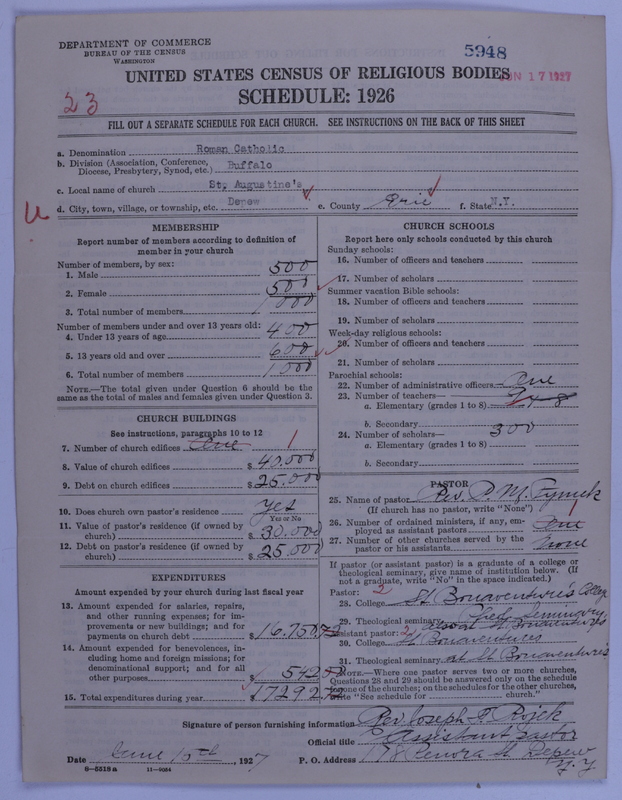 DEPARTMENT OF COMMERCE
BUREAU OF THE CENSUS
WASHINGTON
5948
JUN 17 1927
UNITED STATES CENSUS OF RELIGIOUS BODIES
SCHEDULE: 1926
23
FILL OUT A SEPARATE SCHEDULE FOR EACH CHURCH. SEE INSTRUCTIONS ON THE BACK OF THIS SHEET
a. Denomination Roman Catholic
b. Division (Association, Conference, Diocese, Presbytery, Synod, etc.) Buffalo
c. Local name of church St. Augustine's
d. City, town, village, or township, etc. Depew e. County Erie f. State N.Y.
U
MEMBERSHIP
Report number of members according to definition of
member in your church
Number of members, by sex:
1. Male 500
2. Female 500
3. Total number of members 1000
Number of members under and over 13 years old:
4. Under 13 years of age 400
5. 13 years old and over 600
6. Total number of members 1000
NOTE.—The total given under Question 6 should be
same as the total of males and females given under Question 3.
CHURCH BUILDINGS
See instructions, paragraphs 10 to 12
7. Number of church edifices One 1
8. Value of church edifices $ 40.000
9. Debt on church edifices $ 25.000
10. Does church own pastor's residence? Yes
Yes or No
11. Value of pastor's residence (if owned by
church) $ 30.000
12. Debt on pastor's residence (if owned by
church) $ 25.000
EXPENDITURES
Amount expended by your church during last fiscal year
13. Amount expended for salaries, repairs,
and other running expenses; for im-
provements or new buildings; and for
payments on church debt $ 16.750
14. Amount expended for benevolences, in-
cluding home and foreign missions; for
denominational support; and for all
other purposes $ 542
15. Total expenditures during year $ 17292
CHURCH SCHOOLS
Report here only schools conducted by this church
Sunday schools:
16. Number of officers and teachers
17. Number of scholars
Summer vacation Bible schools:
18. Number of officers and teachers
19. Number of scholars
Week-day religious schools:
20. Number of officers and teachers
21. Number of scholars
Parochial schools:
22. Number of administrative officers One
23. Number of teachers—
a. Elementary (grades 1 to 8)
b. Secondary
24. Number of scholars— 300
a. Elementary (grades 1 to 8)
b. Secondary
PASTOR
25. Name of pastor Rev. P. M.
(If church has no pastor, write "None")
26. Number of ordained ministers, if any, em-
ployed as assistant pastors One 1
27. Number of other churches served by the
pastor or his assistants None
If pastor (or assistant pastor) is a graduate of a college or
theological seminary, give name of institution below. (If
not a graduate, write "No" in the space indicated.)
Pastor: 2
28. College St Bonaventure's College
29. Theological seminary Seminary, St Bonaventures
Assistant pastor: 2
30. College St Bonaventures
31. Theological seminary at St Bonaventure's
NOTE.—Where one pastor serves two or more churches,
Questions 28 and 29 should be answered only on the schedule
for one of the churches; on the schedules for the other churches,
write "See schedule for church."
Signature of person furnishing information Rev Joseph F. Rojek
Official title Assistant Pastor
Date June 15th, 1927 P. O. Address St Depew
N.Y.
8—5518a 11—9054